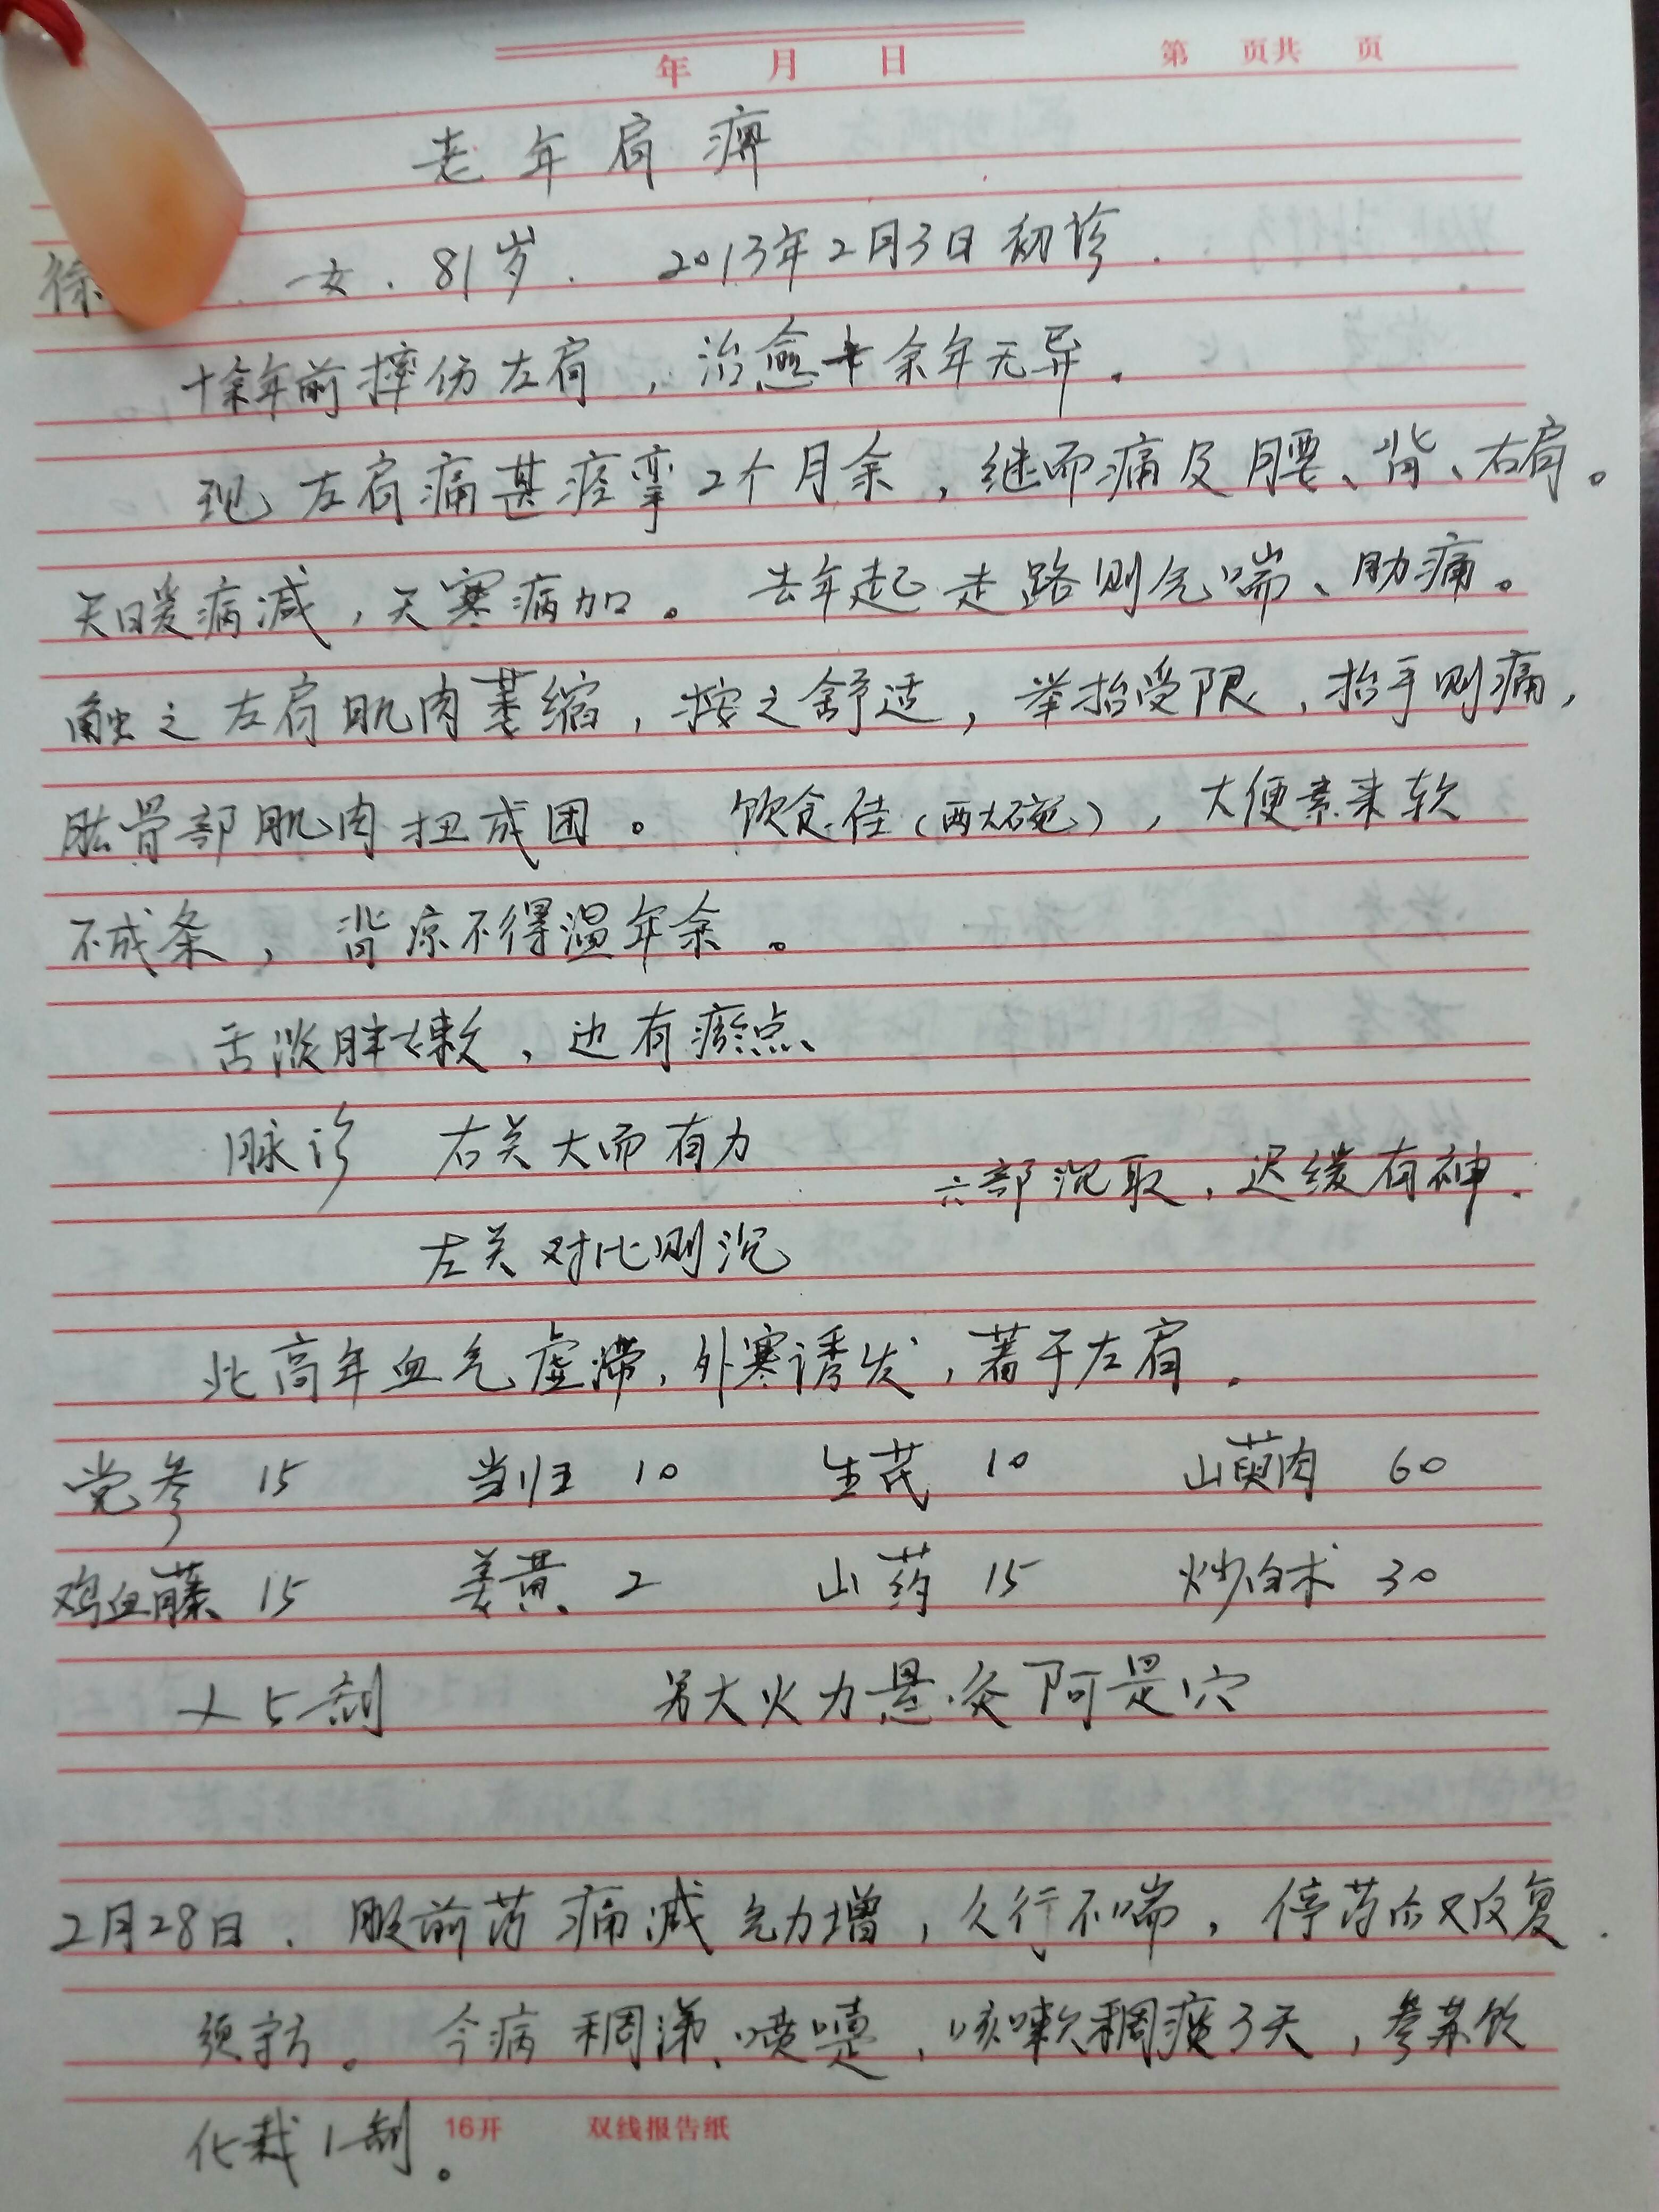 年 月 日 第 页共 页
老年肩痹
徐 女.81岁. 2013年2月3日初诊.
十余年前摔伤左肩,治愈十余年无异.
现左肩痛甚痉挛2个月余,继而痛及腰、背、右肩。
天暖病减,天寒病加。去年起走路则气喘、肋痛。
触之左肩肌肉萎缩,按之舒适,举抬受限,抬手则痛,
肱骨部肌肉扭成团。饮食佳(两大碗),大便素来软
不成条,背凉不得温年余。
舌淡胖嫩,边有瘀点、
脉诊 右关大而有力
六部沉取,迟缓有神.
左关对比则沉
此高年血气虚滞,外寒诱发,著于左肩.
党参 15 当归 10 生芪 10 山萸肉 60
鸡血藤 15 姜黄 2 山药 15 炒白术 30
×5剂 另大火力悬灸阿是穴
2月28日.服前药痛减气力增,久行不喘,停药后又反复.
须守方。今病稠涕、喷嚏,咳嗽稠痰3天,参苏饮
化裁1剂。
16开 双线报告纸